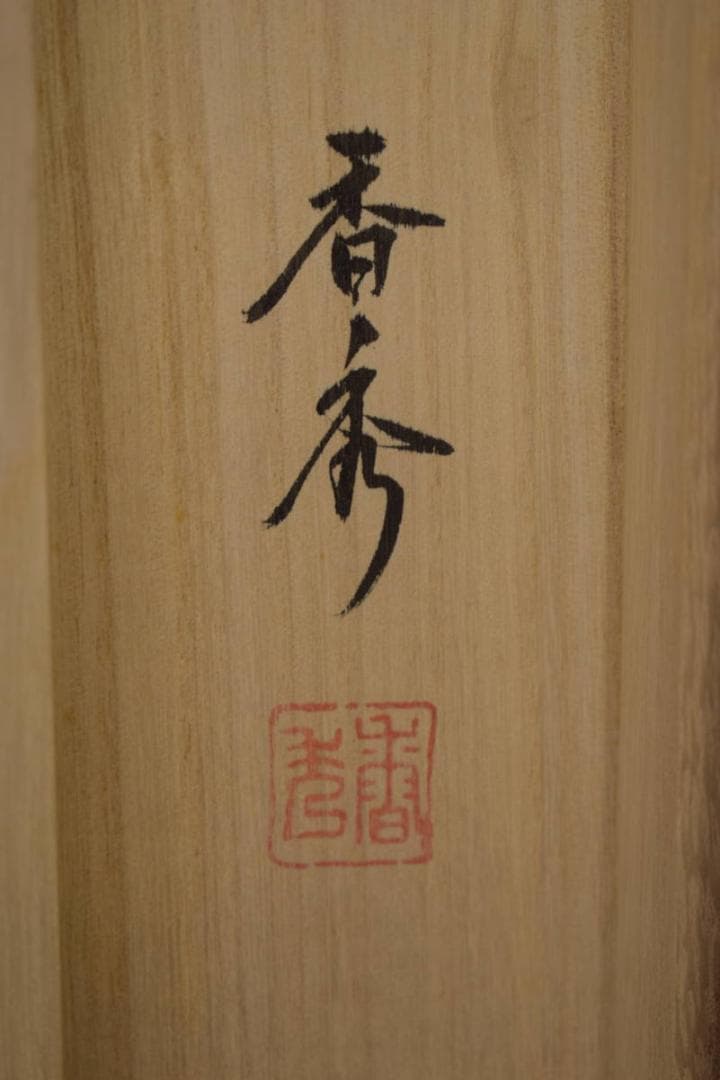 香秀
香秀